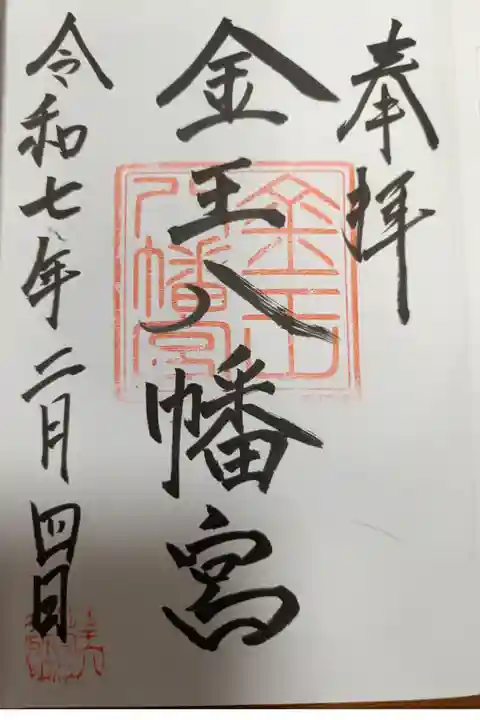 奉拝
金王八幡宮
金王八幡宮
令和七年二月四日